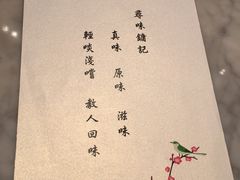 尋味鏞記
真味 原味 滋味
輕啖淺嚐 教人回味